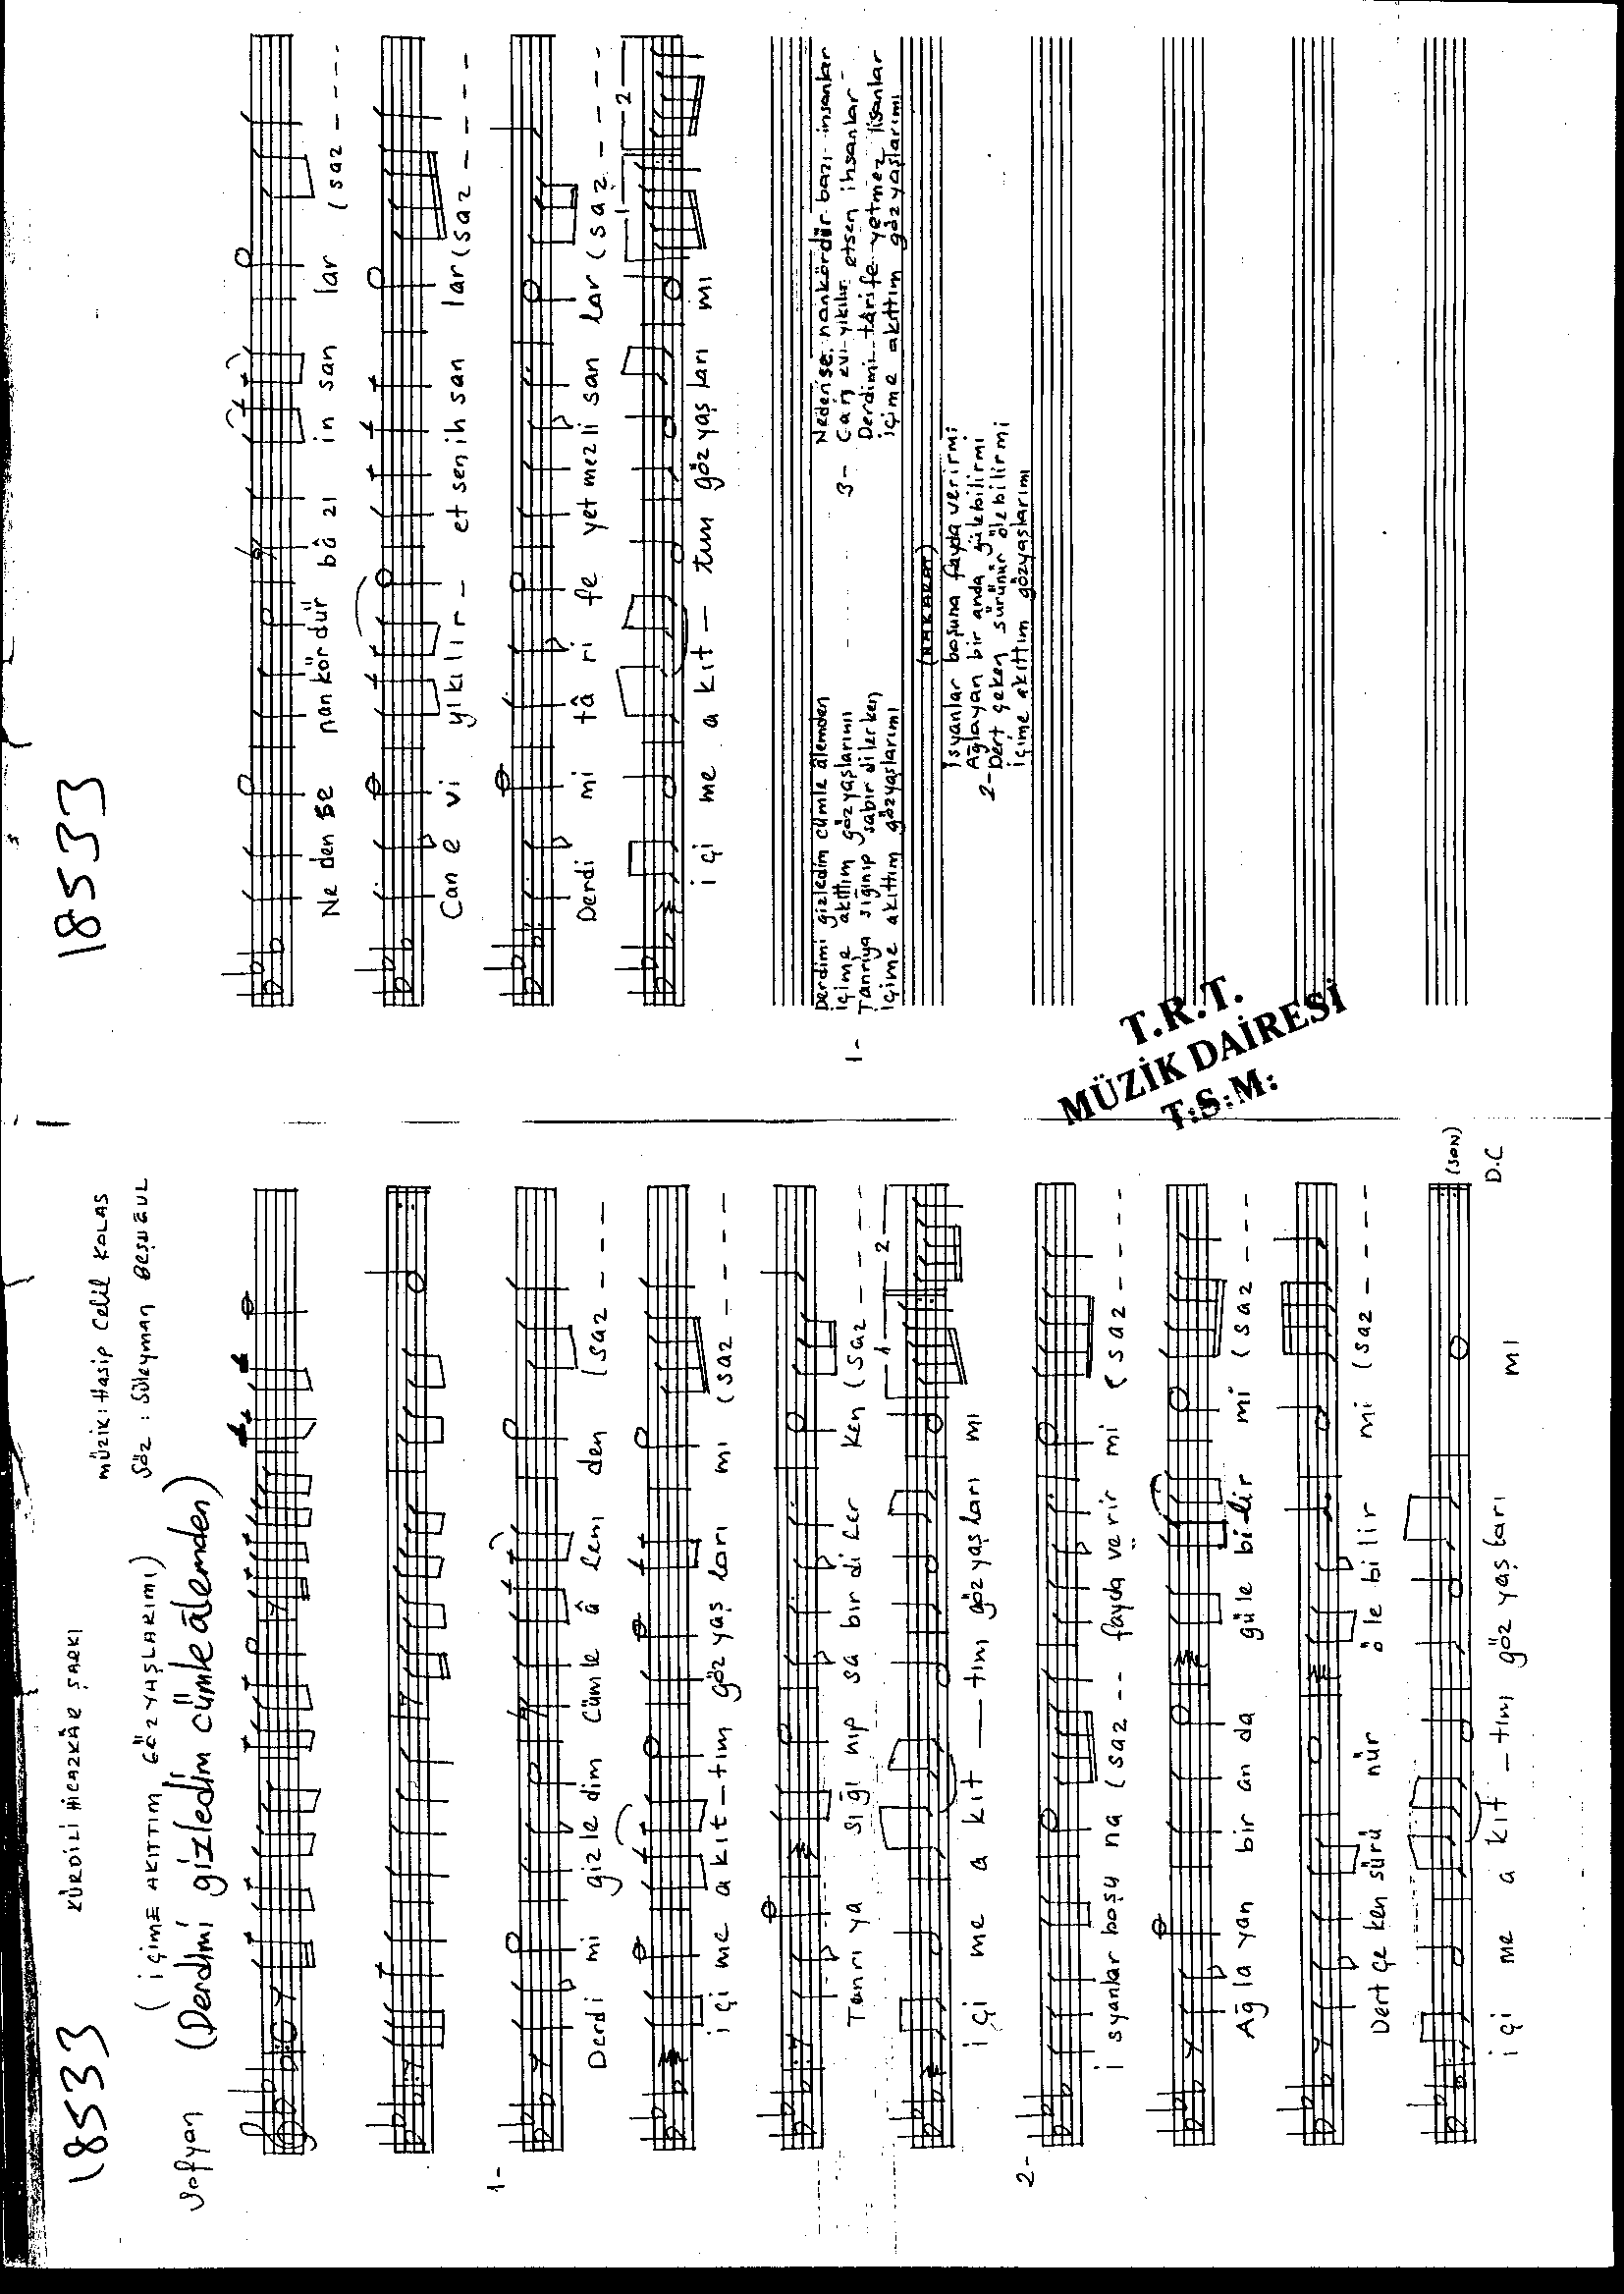 18533
KÜRDİLİ HİCAZKÂR ŞARKI
MÜZİK: Hasip Celil KOLAS
Söz: Süleyman BEŞUĞUL
Sofyan
(İÇİME AKITTIM GÖZYAŞLARIMI)
(Derdimi gizledim cümle âlemden)
1-
Derdi mi gizle dim cümle â lem den (saz - - - -
i çi me a kıt - tım göz yaş ları mı (saz - - - -
Tanrı ya sığı nıp sa bır di ler ken (saz - - - -
1 2
i çi me a kıt - tım göz yaş ları mı
2-
i syanlar boşu na (saz - - fayda verir mi (saz - - - -
Ağ la yan bir an da güle bilir mi (saz - - -
Dert çe ken sürü nür ö le bi lir mi (saz - - - -
i çi me a kıt - tım göz yaş ları mı
(SON)
D.C
18533
Ne den se nan kör dür bâ zı in san lar (saz - - - -
Can e vi yı kı lır - et sen ih san lar (saz - - - -
Derdi mi tâ ri fe yet mez li san lar (saz - - - -
1 2
i çi me a kıt - tım göz yaş ları mı
1-
Derdimi gizledim cümle âlemden
içime akıttım gözyaşlarımı
Tanrıya sığınıp sabır dilerken
içime akıttım gözyaşlarımı
(NAKARAT)
2-
İsyanlar boşuna fayda verirmi
Ağlayan bir anda gülebilirmi
Dert çeken sürünür ölebilirmi
içime akıttım gözyaşlarımı
3-
Nedense nankördür bazı insanlar
Can evi yıkılır etsen ihsanlar
Derdimi târife yetmez lisanlar
içime akıttım gözyaşlarımı
T.R.T.
MÜZİK DAİRESİ
T.S.M.